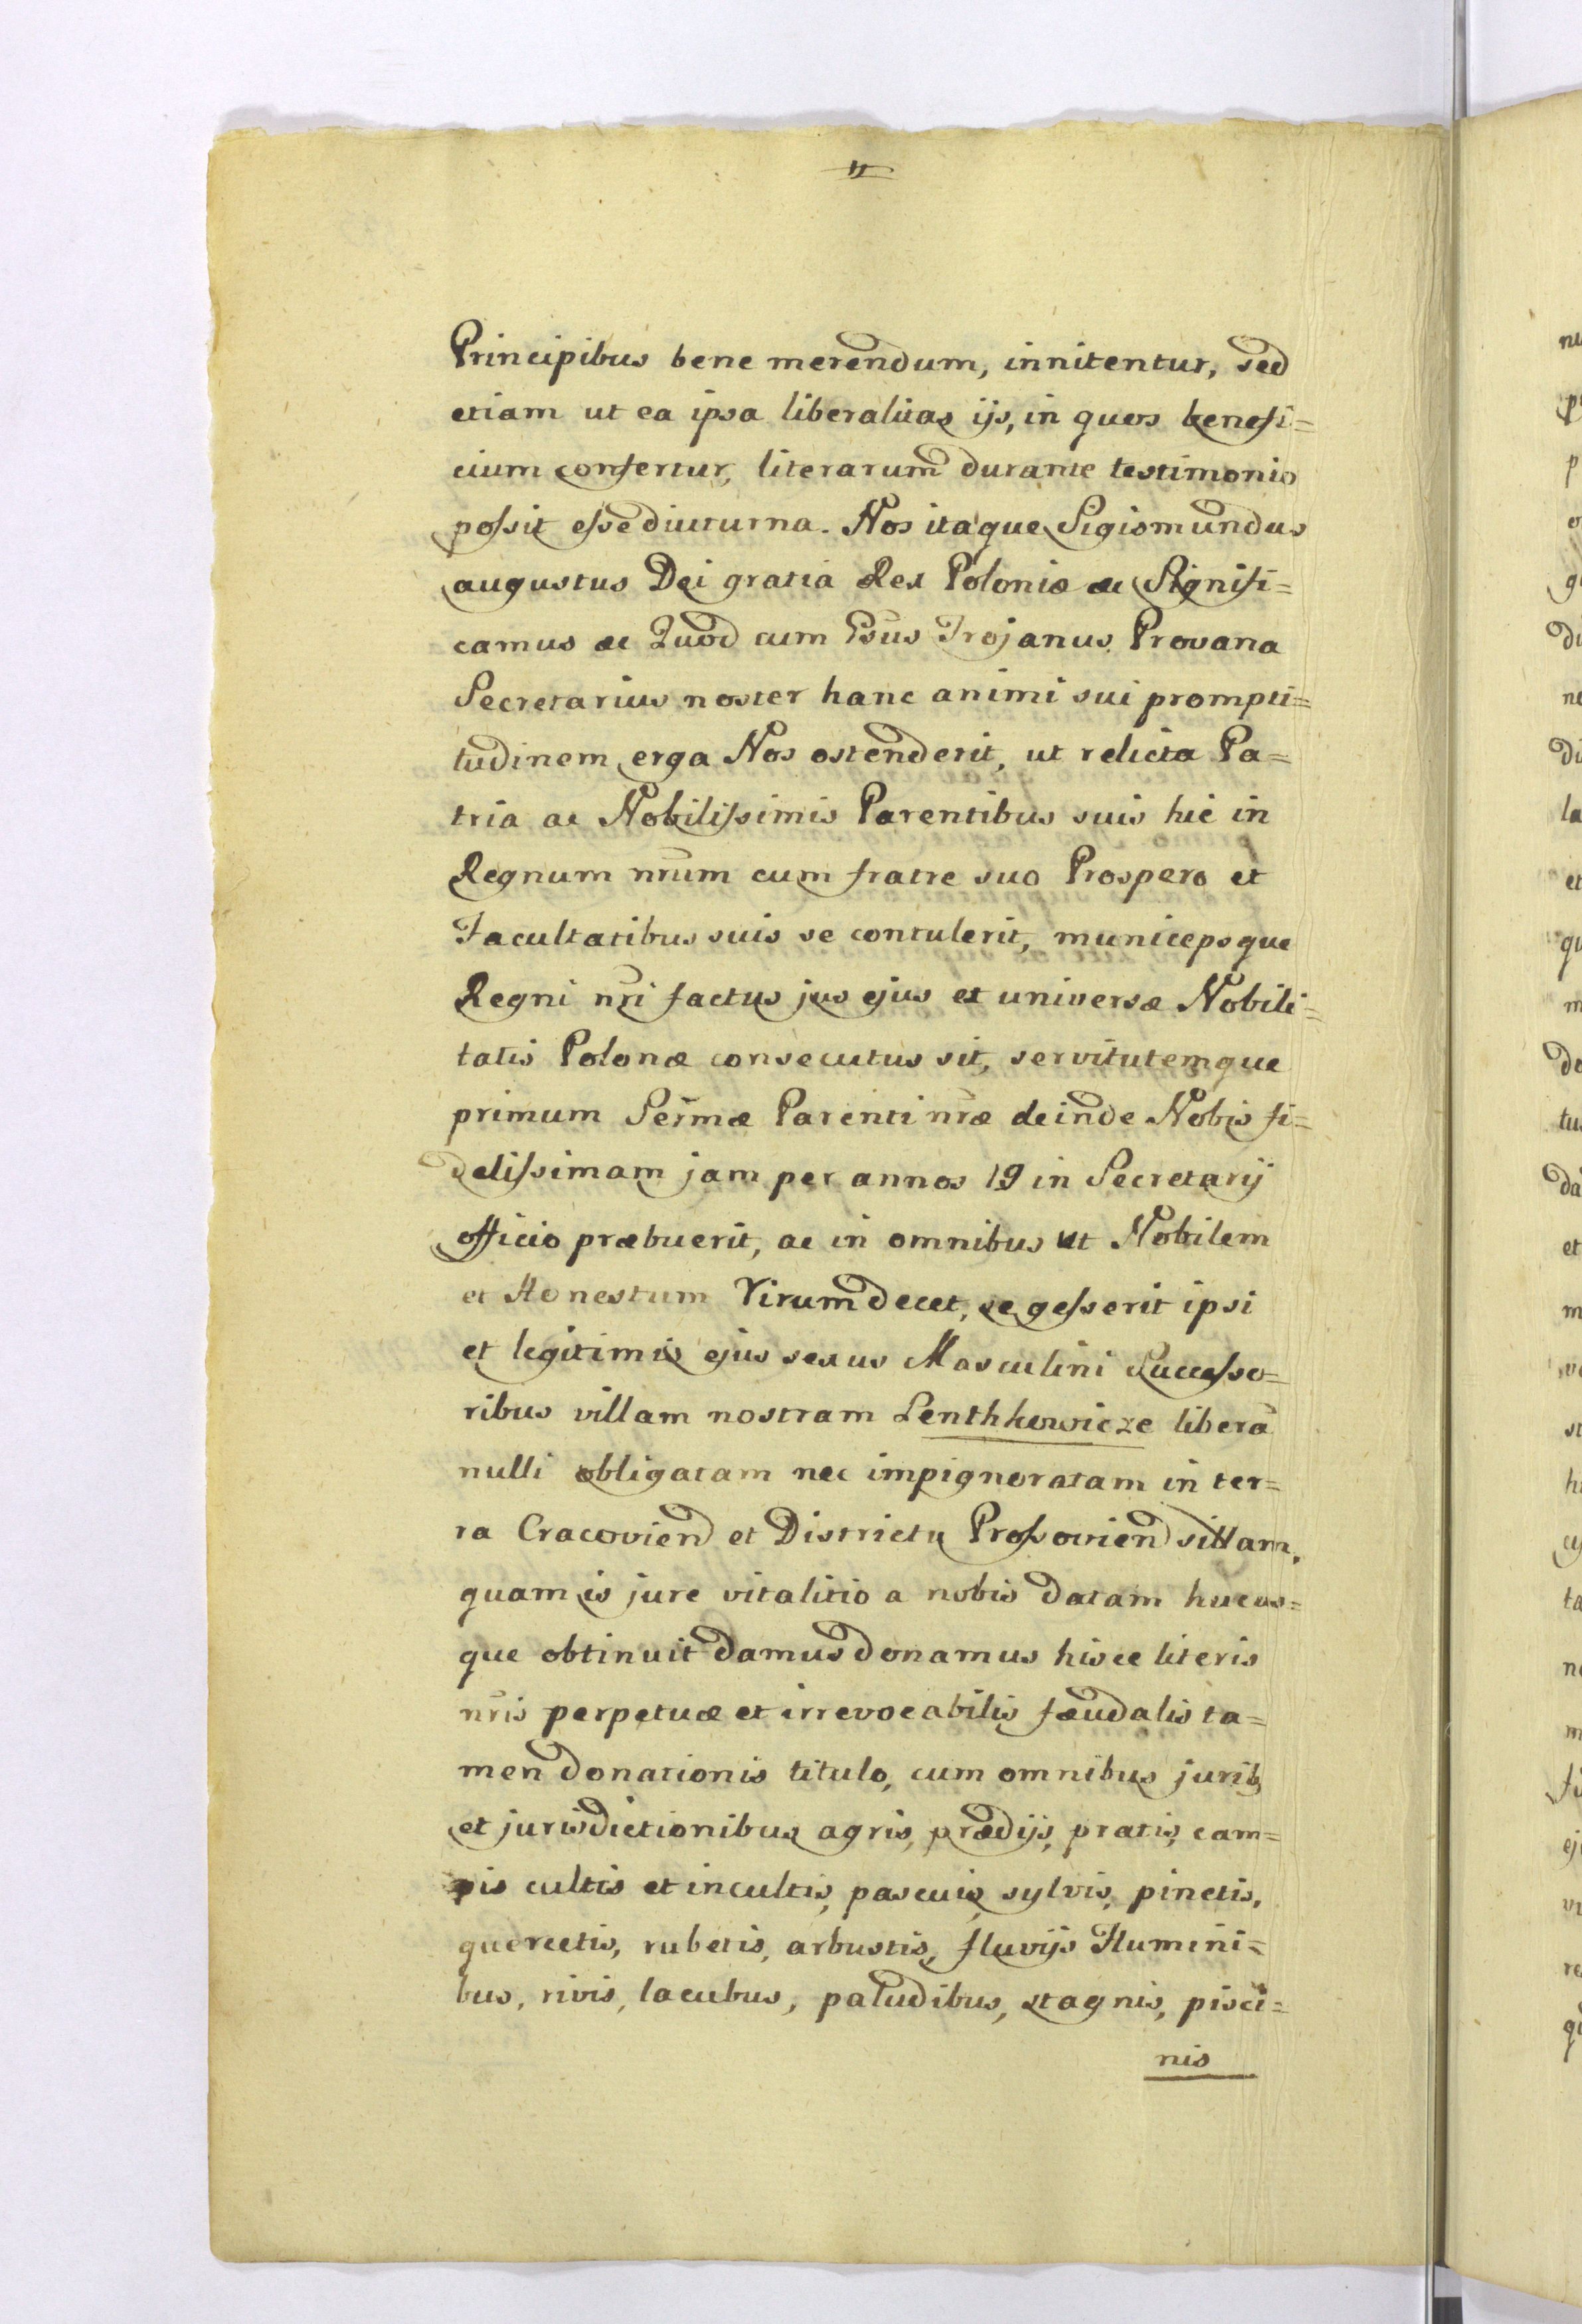 Principibus bene merendum, innitentur, sed
etiam ut ea ipsa liberalitas ijs, in quos benefi=
cium confertur, literarum durante testimonio
poſsit eſse diuturna. Nos itaque Sigismundus
augustus Dei gratia Rex Poloniæ &c Signifi=
camus &c Quod cum Gsus Trojanus Provana
Secretarius noster hanc animi sui prompti=
tudinem erga Nos ostenderit, ut relicta Pa=
tria ac Nobiliſsimis Parentibus suis hic in
Regnum nr̃um cum fratre suo Prospero et
Facultatibus suis se contulerit, municepsque
Regni nr̃i factus jus ejus et universæ Nobili=
tatis Polonæ consecutus sit, servitutemque
primum Serm̃æ Parenti nr̃æ deinde Nobis fi=
deliſsimam jam per annos 19 in Secretarij
officio præbuerit, ac in omnibus ut Nobilem
et Honestum Virum decet, se geſserit ipsi
et legitimis ejus sexus Masculini Succeſso=
ribus villam nostram Lenthkowicze liberã
nulli obligatam nec impignoratam in ter=
ra Cracovien et Districtu Proſsovien sittam,
quam is jure vitalitio a nobis datam hucus=
que obtinuit damus donamus hisce literis
nr̃is perpetuæ et irrevocabilis fæudalis ta=
men donationis titulo, cum omnibus jurib,
et jurisdictionibus agris, prædijs, pratis, cam=
pis cultis et incultis, pascuis, sylvis, pinetis,
quercetis, rubetis, arbustis, fluvijs Flumini=
bus, rivis, lacubus, paludibus, stagnis, pisci=
nis